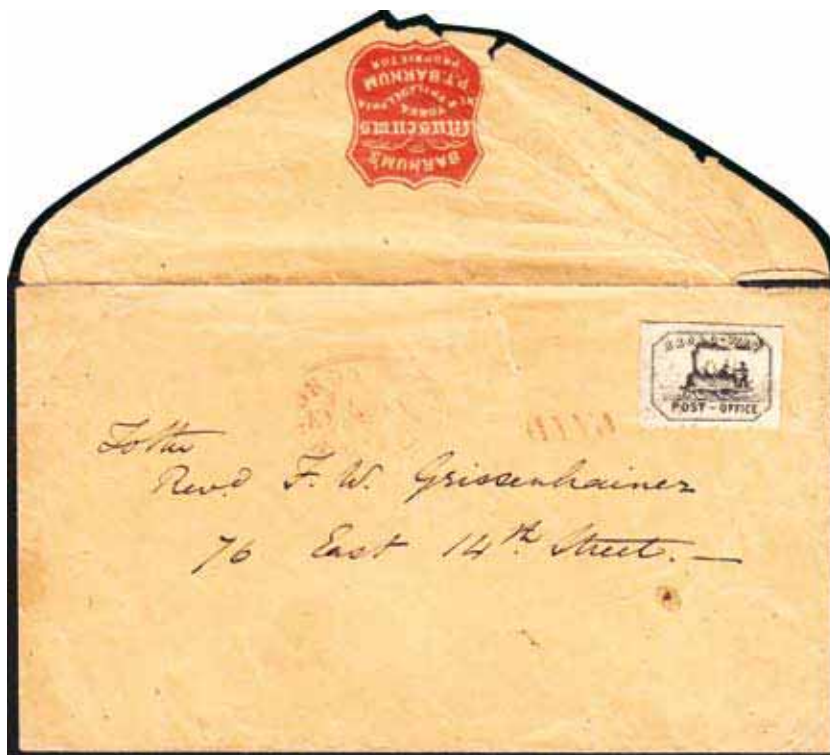 BARNUM'S
Museums
YORK &
PHILADELPHIA
P.T. BARNUM
PROPRIETOR
BROAD-WAY
POST-OFFICE
PAID
To the
Revd. F. W. Geissenhainer
76 East 14th Street.—